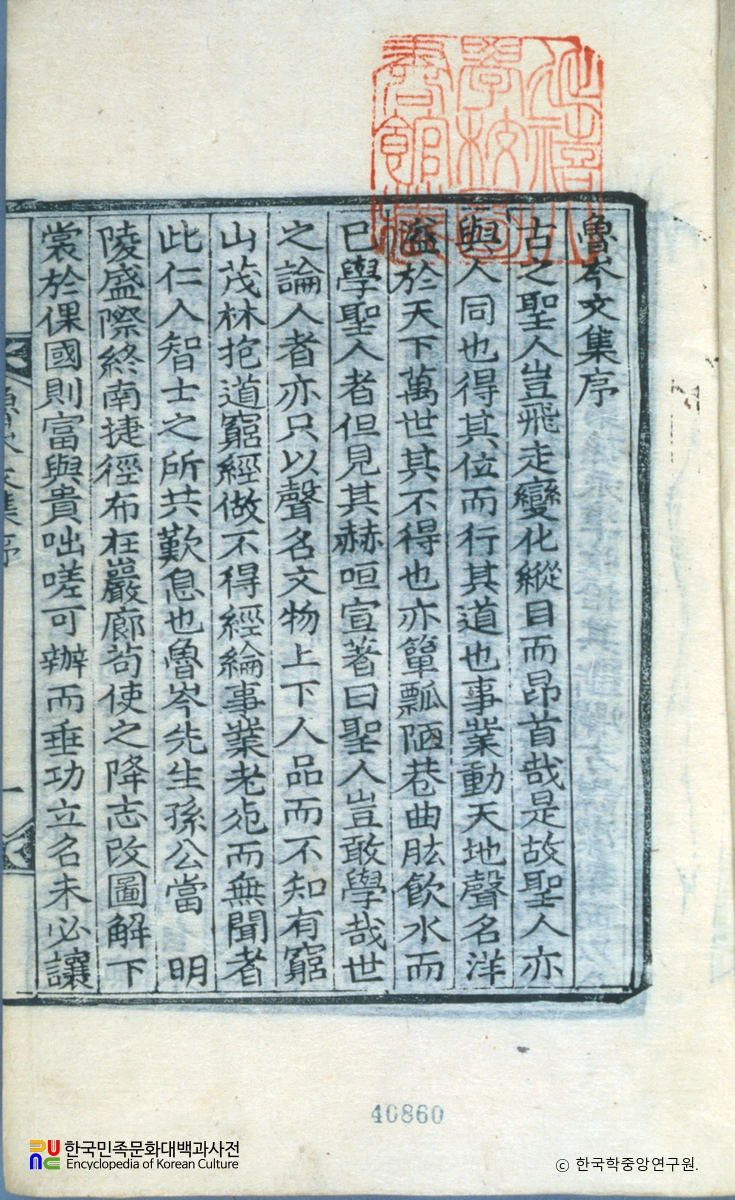 魯岑文集序
古之聖人豈飛走變化縱目而昂首哉是故聖人亦
與人同也得其位而行其道也事業動天地聲名洋
溢於天下萬世其不得也亦簞瓢陋巷曲肱飮水而
已學聖人者但見其赫咺宣著曰聖人豈敢學哉世
之論人者亦只以聲名文物上下人品而不知有窮
山茂林抱道窮經做不得經綸事業老死而無聞者
此仁人智士之所共歎息也魯岑先生孫公當 明
陵盛際終南捷徑布在巖廊苟使之降志改圖解下
裳於倮國則富與貴咄嗟可辦而垂功立名未必讓
魯岑文集序
一
40860
한국민족문화대백과사전
Encyclopedia of Korean Culture
© 한국학중앙연구원.